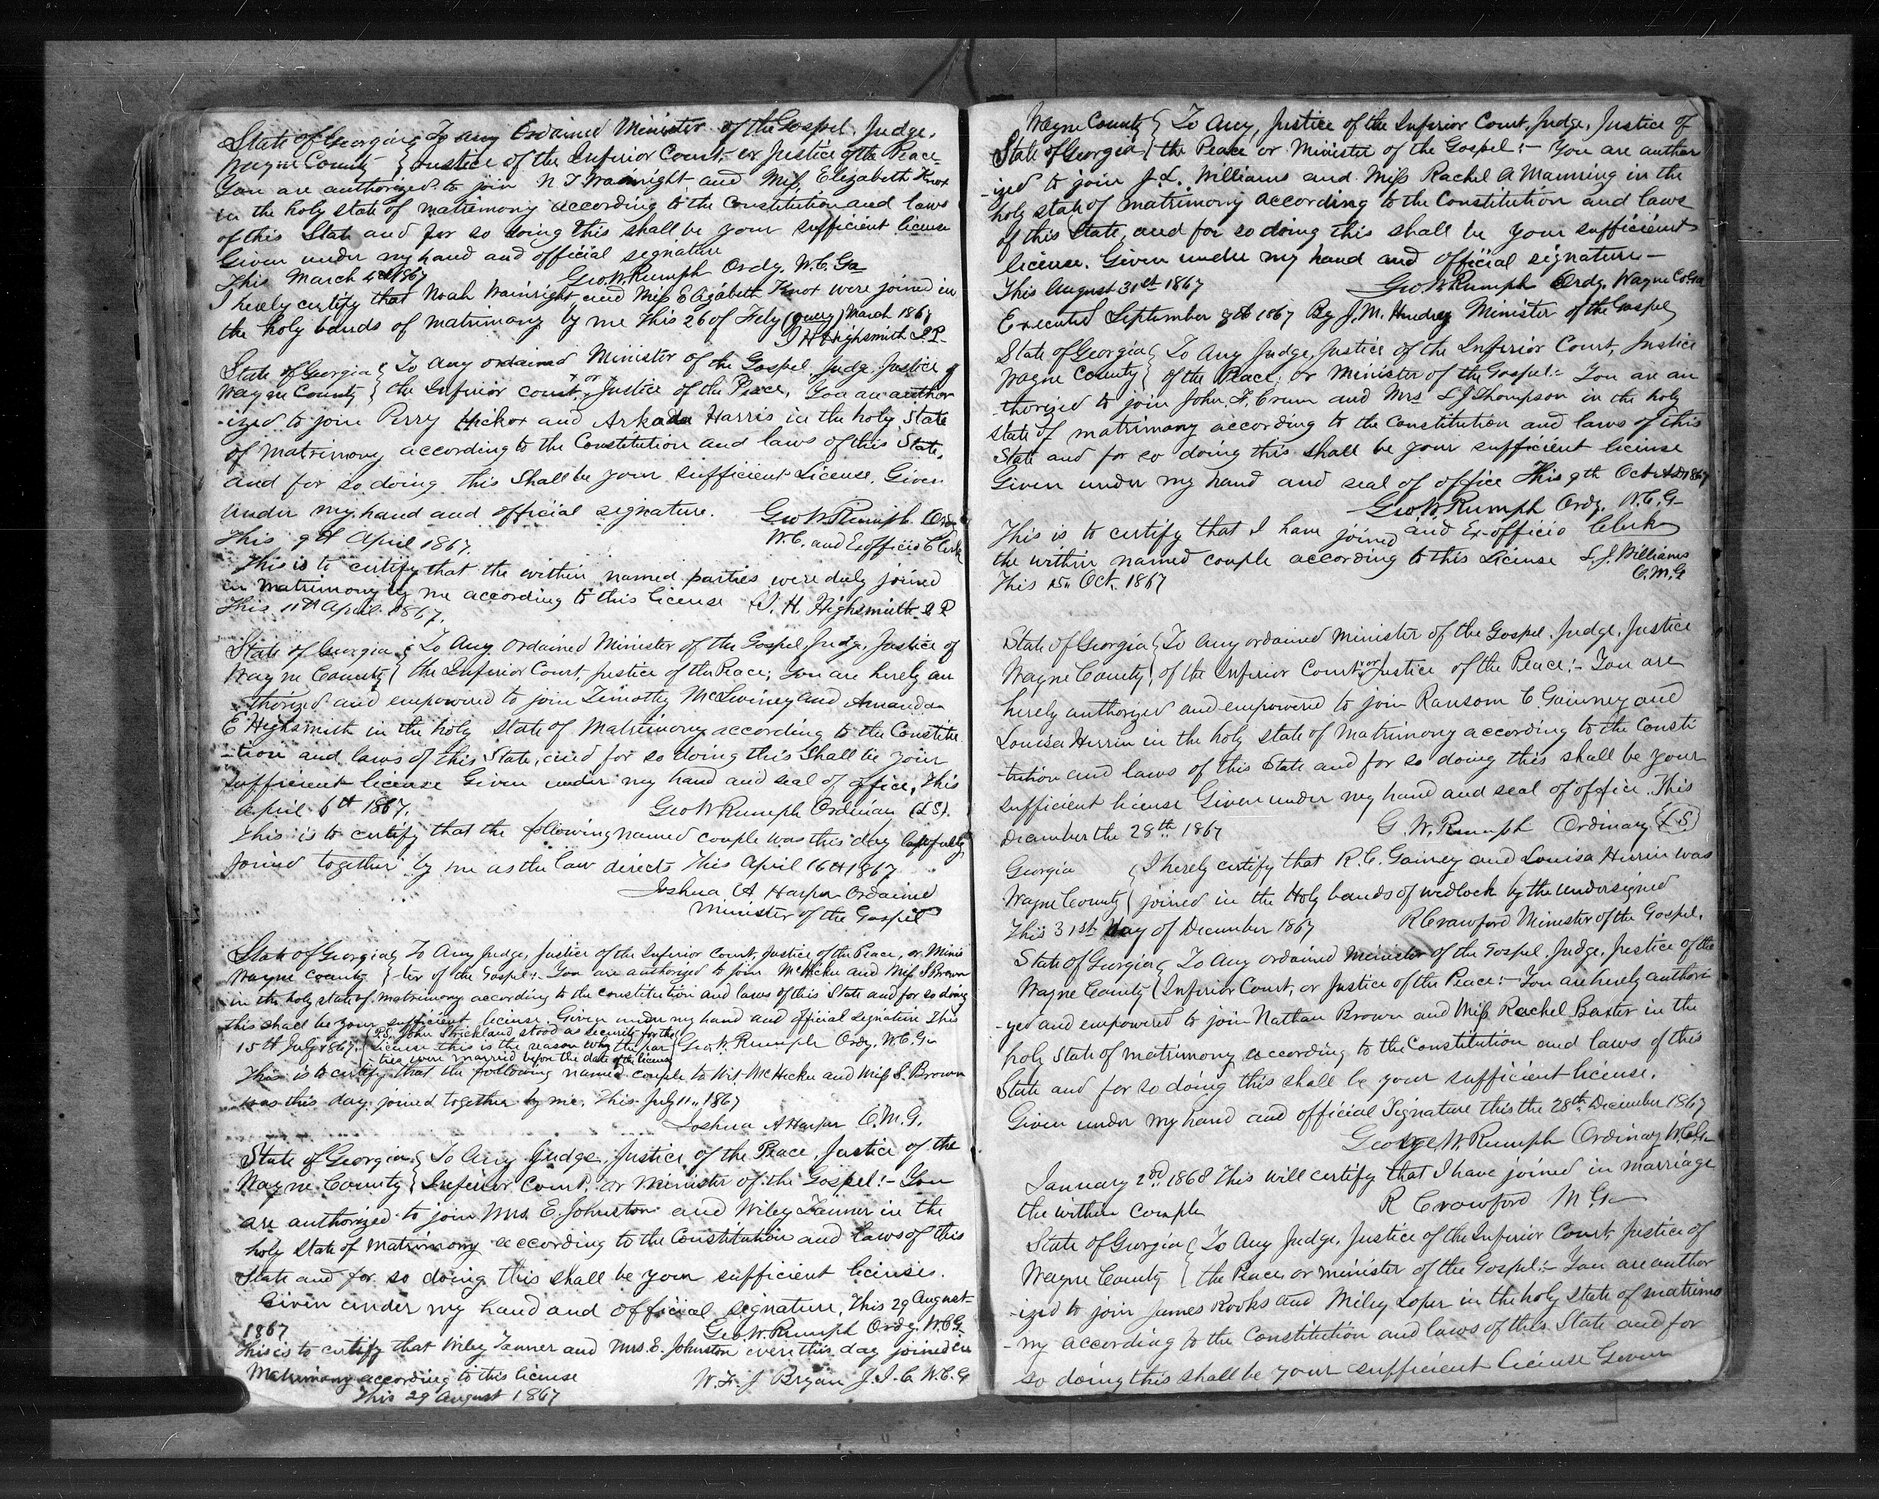 State of Georgia } To any Ordained Minister of the Gospel, Judge,
Wayne County } Justice of the Inferior Court or Justice of the Peace
You are authorized to join N T Wainright and Miss Elizabeth Knox
in the holy state of matrimony according to the Constitution and laws
of this State and for so doing this shall be your sufficient license
Given under my hand and official signature
This March 1867 Geo W Rumph Ordy. W. C. Ga
I herely certify that Noah Wainright and Miss Elizabeth Knox were joined in
the holy bands of matrimony by me This 26 of Feby (query) March 1867
J H Highsmith J.P.
State of Georgia } To any ordained Minister of the Gospel, Judge, Justice of
Wayne County } the Inferior court, or Justice of the Peace, You are author
-ized to join Perry Hickox and Arkada Harris in the holy State
of Matrimony according to the Constitution and laws of this State,
and for so doing this Shall be your sufficient License. Given
under my hand and official signature. Geo W Rumph Ordy
This 9th April 1867. W.C. and Exofficio Clerk
This is to certify that the within named parties were duly joined
in matrimony by me according to this license J. H. Highsmith J P
This 11th April 1867.
State of Georgia } To Any Ordained Minister of the Gospel, Judge, Justice of
Wayne County } the Inferior Court, justice of the Peace, You are herely au
thorized and empowered to join Timothy McSwiney and Amanda
E Highsmith in the holy state of Matrimony according to the Constitu
-tion and laws of this State, and for so doing this Shall be your
sufficient license Given under my hand and seal of office, This
April 6th 1867. Geo W Rumph Ordinary (L S).
This is to certify that the following named couple was this day lawfully
joined together by me as the law directs This April 16th 1867
Joshua A Harper Ordained
Minister of the Gospel
State of Georgia } To Any Judge, Justice of the Inferior Court, Justice of the Peace, or Minis
Wayne County } ter of the Gospel:- You are authorized to join McHicku and Miss S Brown
in the holy state of matrimony according to the constitution and laws of this State and for so doing
this shall be your sufficient license. Given under my hand and official signature This
15th July 1867. (Rev John Strickland stood as security for the
license this is the reason why the par
ties were married before the date of the license) Geo. W. Rumph Ordy. W. C. Ga
This is to certify that the following named couple to Wit McHicku and Miss S. Brown
was this day joined together by me. This July 11th 1867
Joshua A Harper O.M.G.
State of Georgia } To Any Judge, Justice of the Peace, Justice of the
Wayne County } Inferior Court, or Minister of the Gospel:- You
are authorized to join Mrs. E. Johnston and Wiley Tanner in the
holy state of Matrimony according to the Constitution and laws of this
State and for so doing this shall be your sufficient license.
Given under my hand and official signature, This 29 August
1867 Geo. W. Rumph Ordy. W.C.G.
This is to certify that Wiley Tanner and Mrs. E. Johnston were this day joined in
Matrimony according to this license W. J. Bryan J. I. C. W. C. G
This 29 August 1867
Wayne County } To Any, Justice of the Inferior Court, Judge, Justice of
State of Georgia } the Peace or Minister of the Gospel:- You are author
-ized to join J. L. Williams and Miss Rachel A Manning in the
holy state of matrimony according to the Constitution and laws
of this State, and for so doing this shall be your sufficient
license. Given under my hand and official signature-
This August 31st 1867 Geo W Rumph Ordy. Wayne Co Ga
Executed September 8th 1867 By J. M. Hendry Minister of the Gospel
State of Georgia } To Any Judge, Justice of the Inferior Court, Justice
Wayne County } of the Peace, or Minister of the Gospel:- You are au
thorized to join John. F. Crum and Mrs L J Thompson in the holy
state of matrimony according to the constitution and laws of this
State and for so doing this shall be your sufficient license
Given under my hand and seal of office This 9th Oct AD 1867
Geo W Rumph Ordy. W. C. G-
This is to certify that I have joined and Ex-officio Clerk
the within named couple according to this License L. J. Williams
This 15th Oct. 1867 O.M.G
State of Georgia } To any ordained Minister of the Gospel, Judge, Justice
Wayne County } of the Inferior Court, or Justice of the Peace:- You are
herely authorized and empowered to join Ransom C Gainney and
Louisa Herrin in the holy state of matrimony according to the Consti
-tution and laws of this State and for so doing this shall be your
sufficient license Given under my hand and seal of office. This
December the 28th 1867 G. W. Rumph Ordinary (L.S.)
Georgia } I herely certify that R. C. Gainey and Louisa Herrin was
Wayne County } joined in the Holy bands of wedlock by the undersigned
This 31st Day of December 1867 R Crawford Minister of the Gospel.
State of Georgia } To Any ordained minister of the Gospel, Judge, Justice of the
Wayne County } Inferior Court, or Justice of the Peace:- You are herely authori
-yed and empowered to join Nathan Brown and Miss Rachel Baxter in the
holy State of matrimony according to the Constitution and laws of this
State and for so doing this shall be your sufficient license.
Given under my hand and official Signature this the 28th December 1867
George W Rumph Ordinary W.C.G-
January 2nd 1868 This will certify that I have joined in marriage
the within couple R Crawford M G-
State of Georgia } To Any Judge, Justice of the Inferior Court, Justice of
Wayne County } the Peace or minister of the Gospel:- You are author
-ized to join James Rooks and Miley Loper in the holy state of matrimo
-ny according to the Constitution and laws of this State and for
so doing this shall be your sufficient license Given